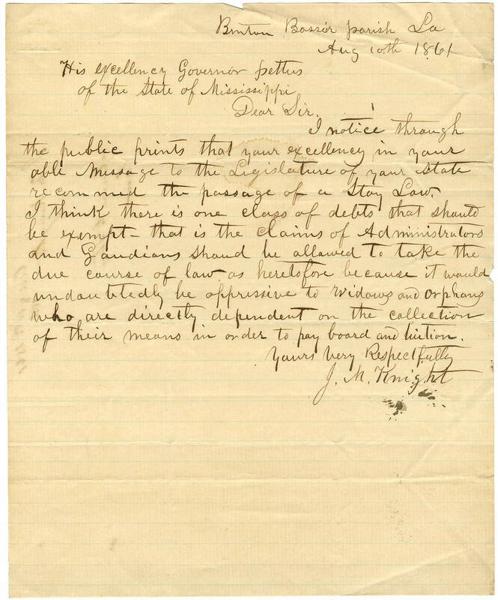 Benton Bossier parish La
Aug 10th 1861
His excellency Governor pettus
of the State of Mississippi
Dear Sir.
I notice through
the public prints that your excellency in your
able Message to the Legislature of your State
recommed the passage of a Stay Law.
I think there is one class of debts that should
be exempt - that is the claims of Administrators
and Gaudians shaud be allowed to take the
due course of law as heretofore because it would
undoubtedly be oppressive to widows and orphans
who are directly dependent on the collection
of their means in order to pay board and tuition.
Yours Very Respectfully
J. M. Knight